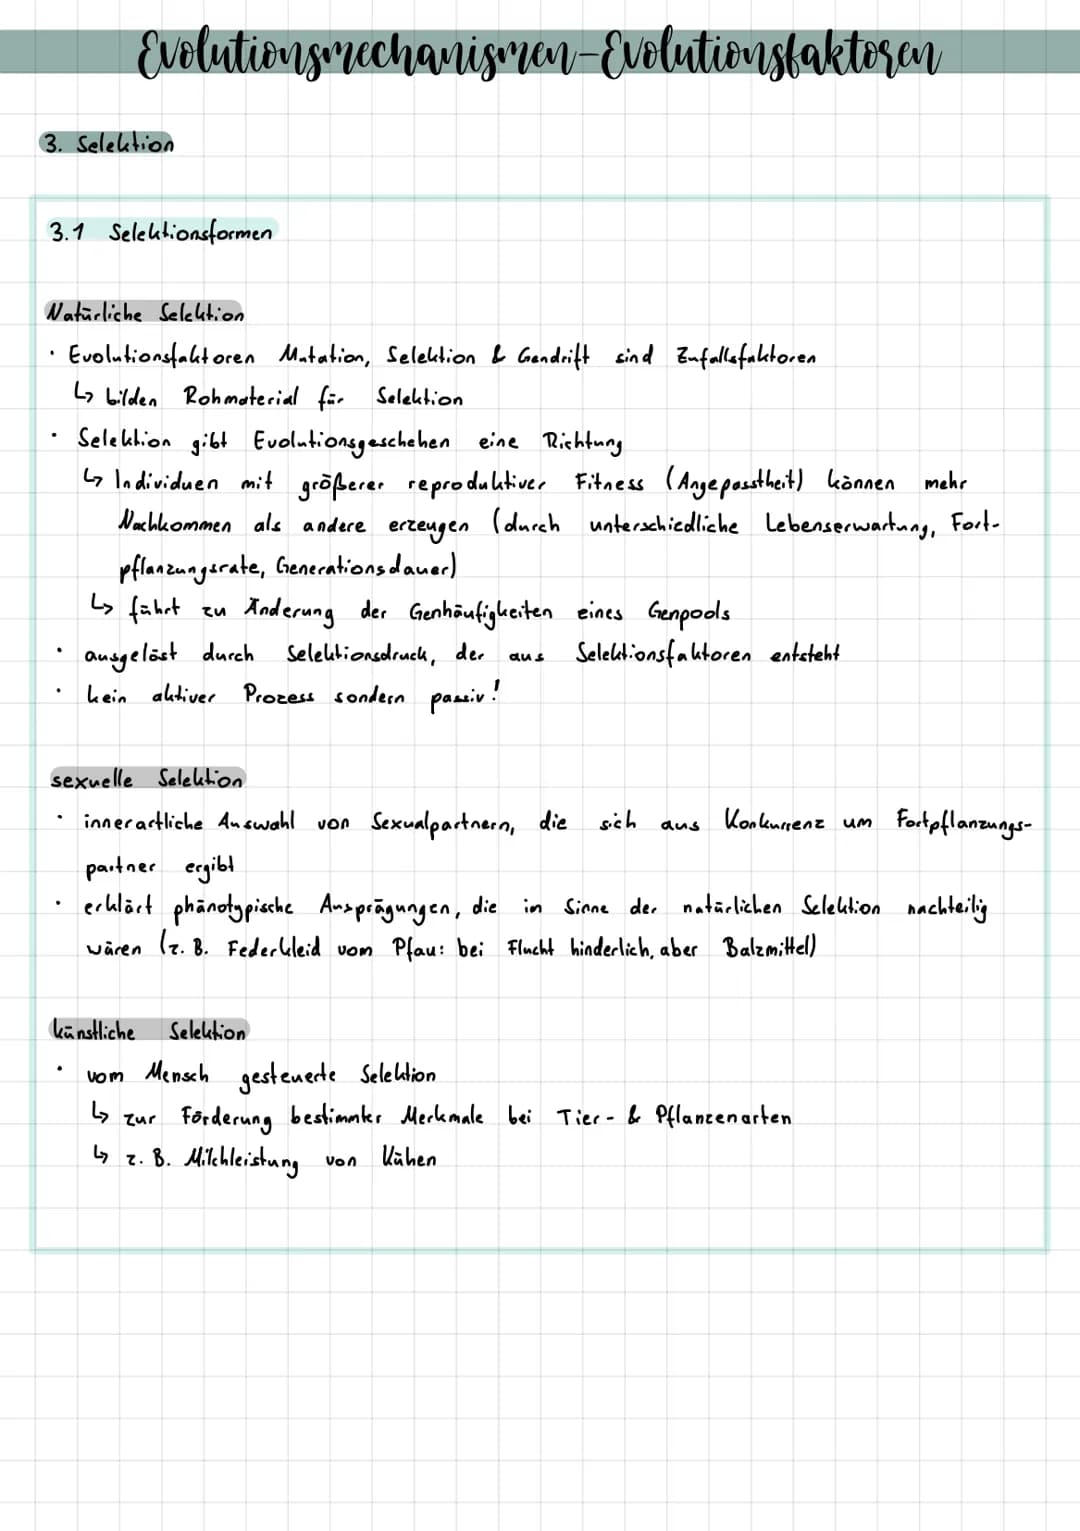 Evolutionsmechanismen-Evolutionsfaktoren
3. Selektion
3.1 Selektionsformen
Natürliche Selektion
· Evolutionsfaktoren Mutation, Selektion & Gendrift sind Zufallsfaktoren
↳ bilden Rohmaterial für Selektion
· Selektion gibt Evolutionsgeschehen eine Richtung
↳ Individuen mit größerer reproduktiver Fitness (Angepasstheit) können mehr
Nachkommen als andere erzeugen (durch unterschiedliche Lebenserwartung, Fort-
pflanzungsrate, Generationsdauer)
↳ führt zu Änderung der Genhäufigkeiten eines Genpools
· ausgelöst durch Selektionsdruck, der aus Selektionsfaktoren entsteht
· kein aktiver Prozess sondern passiv!
sexuelle Selektion
· innerartliche Auswahl von Sexualpartnern, die sich aus Konkurrenz um Fortpflanzungs-
partner ergibt
· erklärt phänotypische Ausprägungen, die im Sinne der natürlichen Selektion nachteilig
wären (z. B. Federkleid vom Pfau: bei Flucht hinderlich, aber Balzmittel)
künstliche Selektion
· vom Mensch gesteuerte Selektion
↳ zur Förderung bestimmter Merkmale bei Tier- & Pflanzenarten
↳ z. B. Milchleistung von Kühen